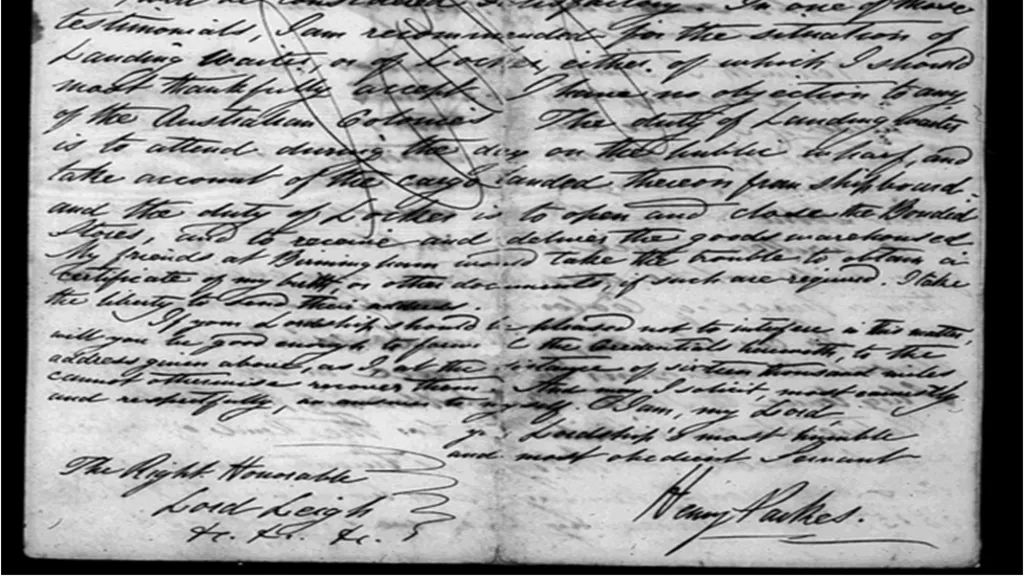 considered satisfactory. In one of those
testimonials, I am recommended for the situation of
Landing Waiter or of Locker, either of which I should
most thankfully accept. I have no objection to any
of the Australian Colonies. The duty of Landing Waiter
is to attend during the day on the public wharf, and
take account of the cargo landed thereon from shipboard.
and the duty of Locker is to open and close the Bonded
Stores, and to receive and deliver the goods warehoused.
My friends at Birmingham would take the trouble to obtain a
certificate of my birth or other documents, if such are required. I take
the liberty to send their address.
If your Lordship should be pleased not to interfere in this matter,
will you be good enough to the herewith, to the
address given above, as I, at the distance of sixteen thousand miles
cannot otherwise recover them. I solicit, most earnestly
and respectfully, an answer to I am, my Lord
Lordship's most humble
and most obedient Servant
Henry Parkes.
The Right Honorable
Lord Leigh
&c. &c. &c.